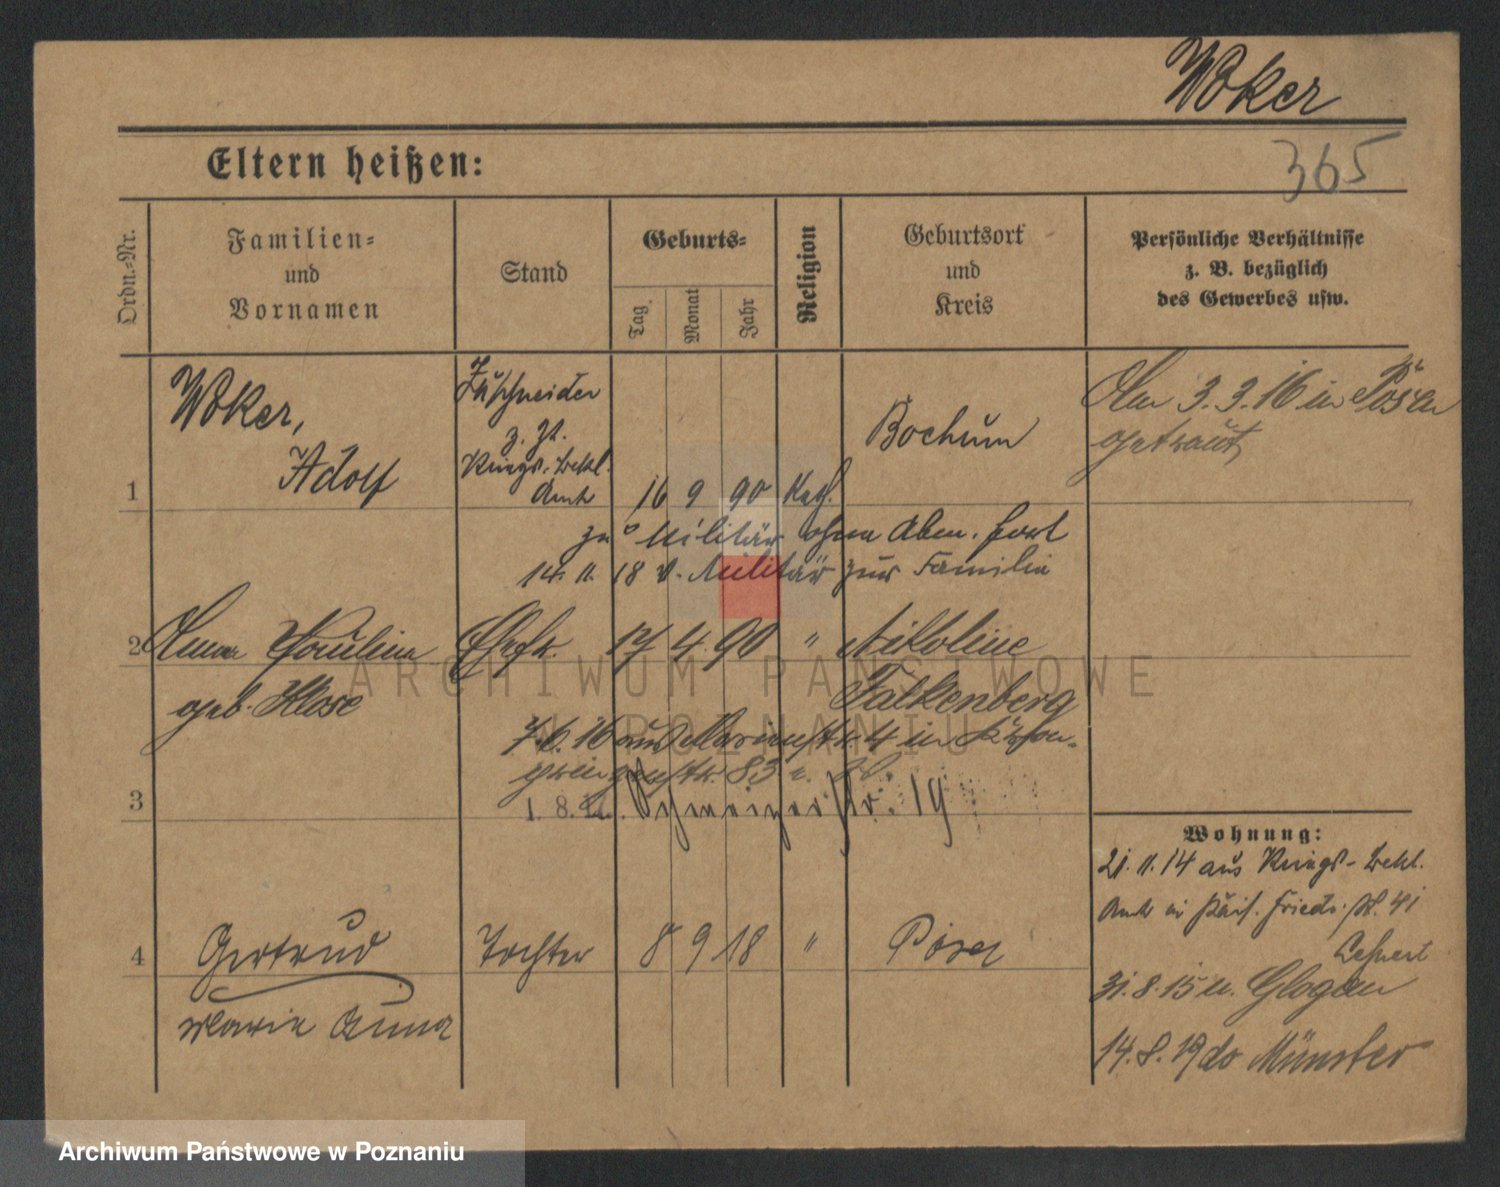 Woker
365
Eltern heißen:
Ordn.-Nr.
Familien-
und
Vornamen
Stand
Geburts-
Tag
Monat
Jahr
Religion
Geburtsort
und
Kreis
Persönliche Verhältnisse
z. B. bezüglich
des Gewerbes usw.
Woker,
Adolf
Zuschneider
z. Zt.
Kriegs-Bekl.
Amt
1
16 9 90 Kath.
Bochum
3.3.16 in Posen
getraut
zu Militär ohne Abm. fort
14. 11. 18 v. Militär zur Familie
2
Anna Paulina
geb. Klose
Ehefr.
17 4. 90 "
Falkenberg
7.6.16 aus 4 in
83
3
1. 8. Str. 19
Wohnung:
21. 11. 14 aus Kriegs-Bekl.
Amt in Kais. Friedr. Str. 41
Lehnert
31. 8. 15 n. Glogau
14. 8. 19 do Münster
4
Gertrud
Maria Anna
Tochter
8 9 18 "
Posen
ARCHIWUM PAŃSTWOWE
W POZNANIU
Archiwum Państwowe w Poznaniu